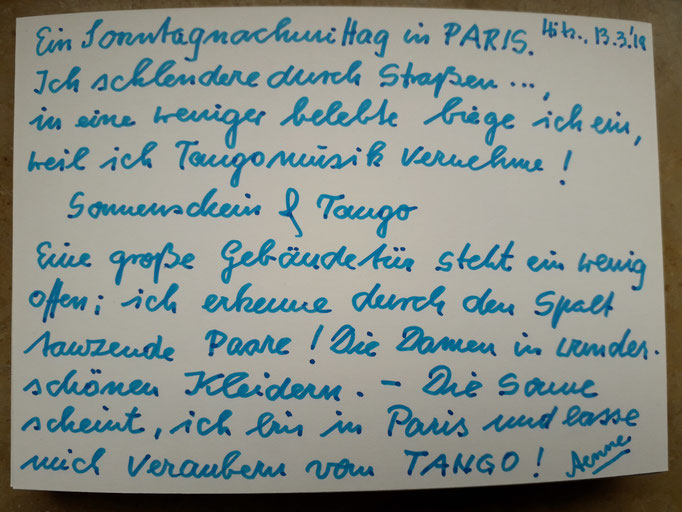 Ein Sonntagnachmittag in PARIS. Hitz., 13.3.'19
Ich schlendere durch Straßen...,
in eine weniger belebte biege ich ein,
weil ich Tangomusik vernehme!
Sonnenschein & Tango
Eine große Gebäudetür steht ein wenig
offen; ich erkenne durch den Spalt
tanzende Paare! Die Damen in wunder-
schönen Kleidern. – Die Sonne
scheint, ich bin in Paris und lasse
mich verzaubern vom TANGO!